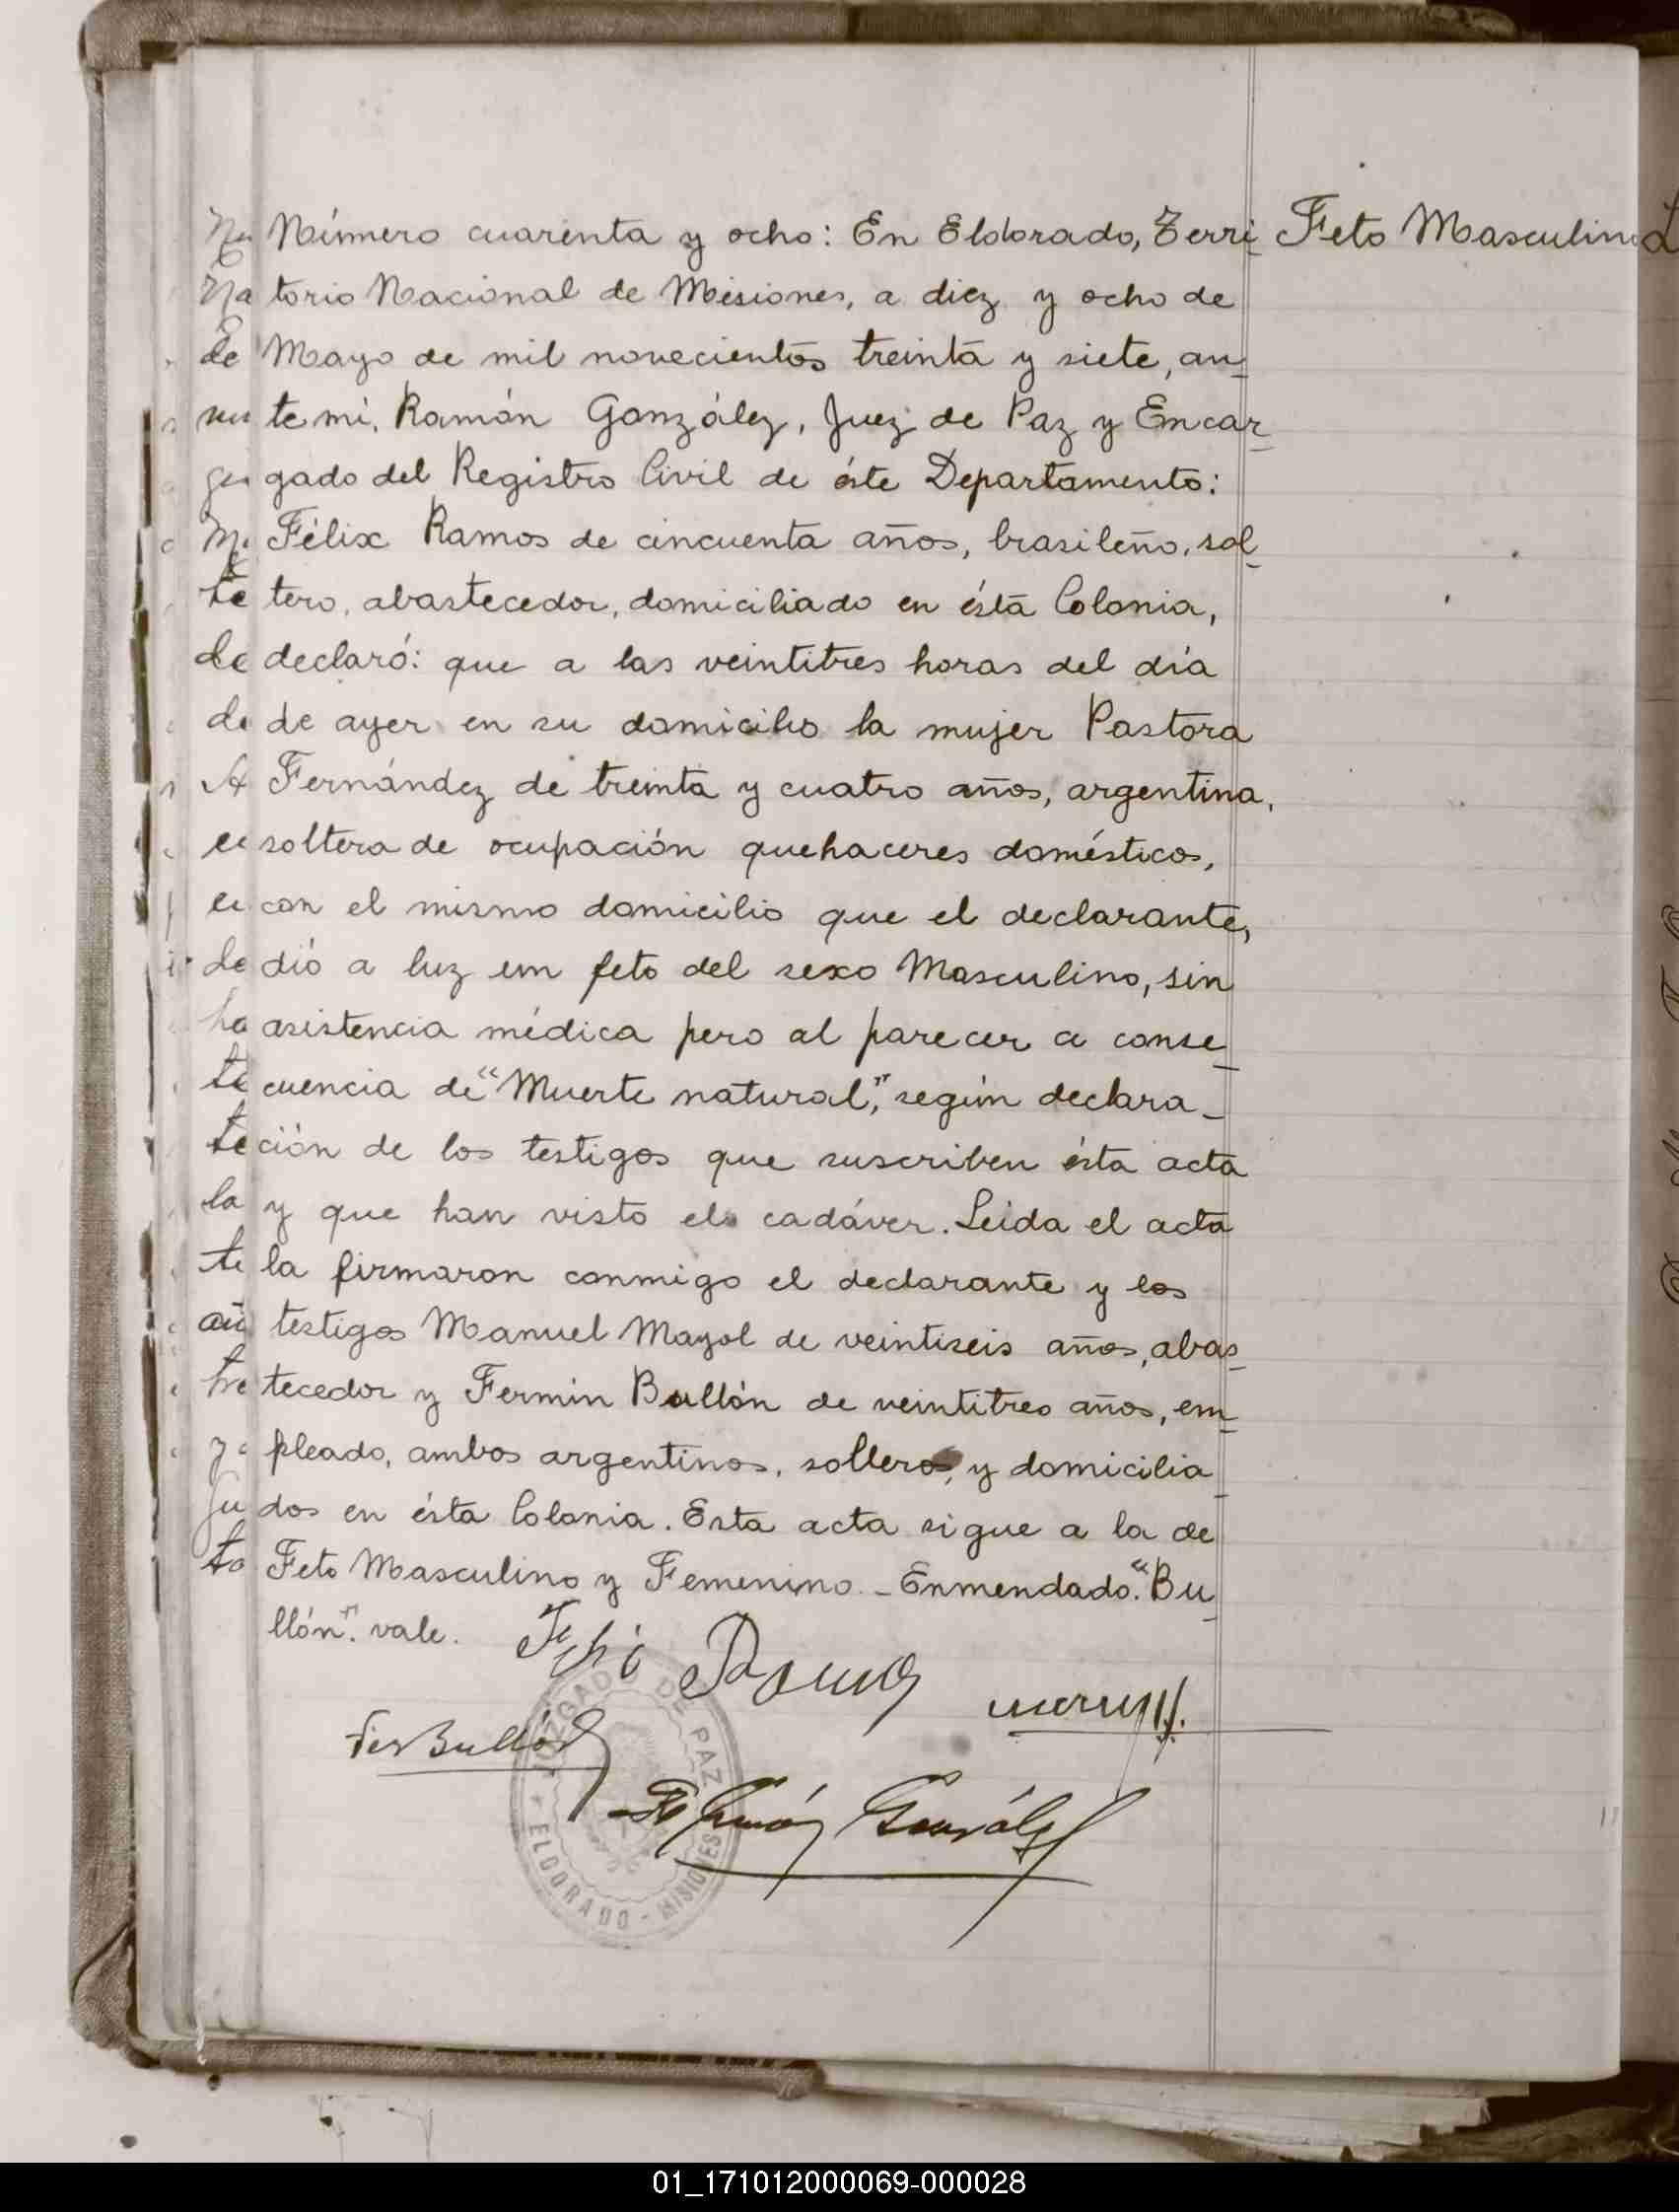 Número cuarenta y ocho: En Eldorado, Terri
Feto Masculino
torio Nacional de Misiones, a diez y ocho de
Mayo de mil novecientos treinta y siete, an_
te mi, Ramón González, Juez de Paz y Encar_
gado del Registro Civil de éste Departamento:
Félix Ramos de cincuenta años, brasileño, sol_
tero, abastecedor, domiciliado en ésta Colonia,
declaró: que a las veintitres horas del día
de ayer en su domicilio la mujer Pastora
Fernández de treinta y cuatro años, argentina,
soltera de ocupación quehaceres domésticos,
con el mismo domicilio que el declarante,
dió a luz un feto del sexo Masculino, sin
asistencia médica pero al parecer a conse_
cuencia de "Muerte natural", según declara_
ción de los testigos que suscriben ésta acta
y que han visto el cadáver. Leida el acta
la firmaron conmigo el declarante y los
testigos Manuel Mayol de veintiseis años, abas_
tecedor y Fermín Bullón de veintitres años, em_
pleado, ambos argentinos, solteros, y domicilia_
dos en ésta Colonia. Esta acta sigue a la de
Feto Masculino y Femenino _ Enmendado. "Bu_
llón". vale.
Fer Bullón
Ramón González
JUZGADO DE PAZ
ELDORADO - MISIONES
01_171012000069-000028